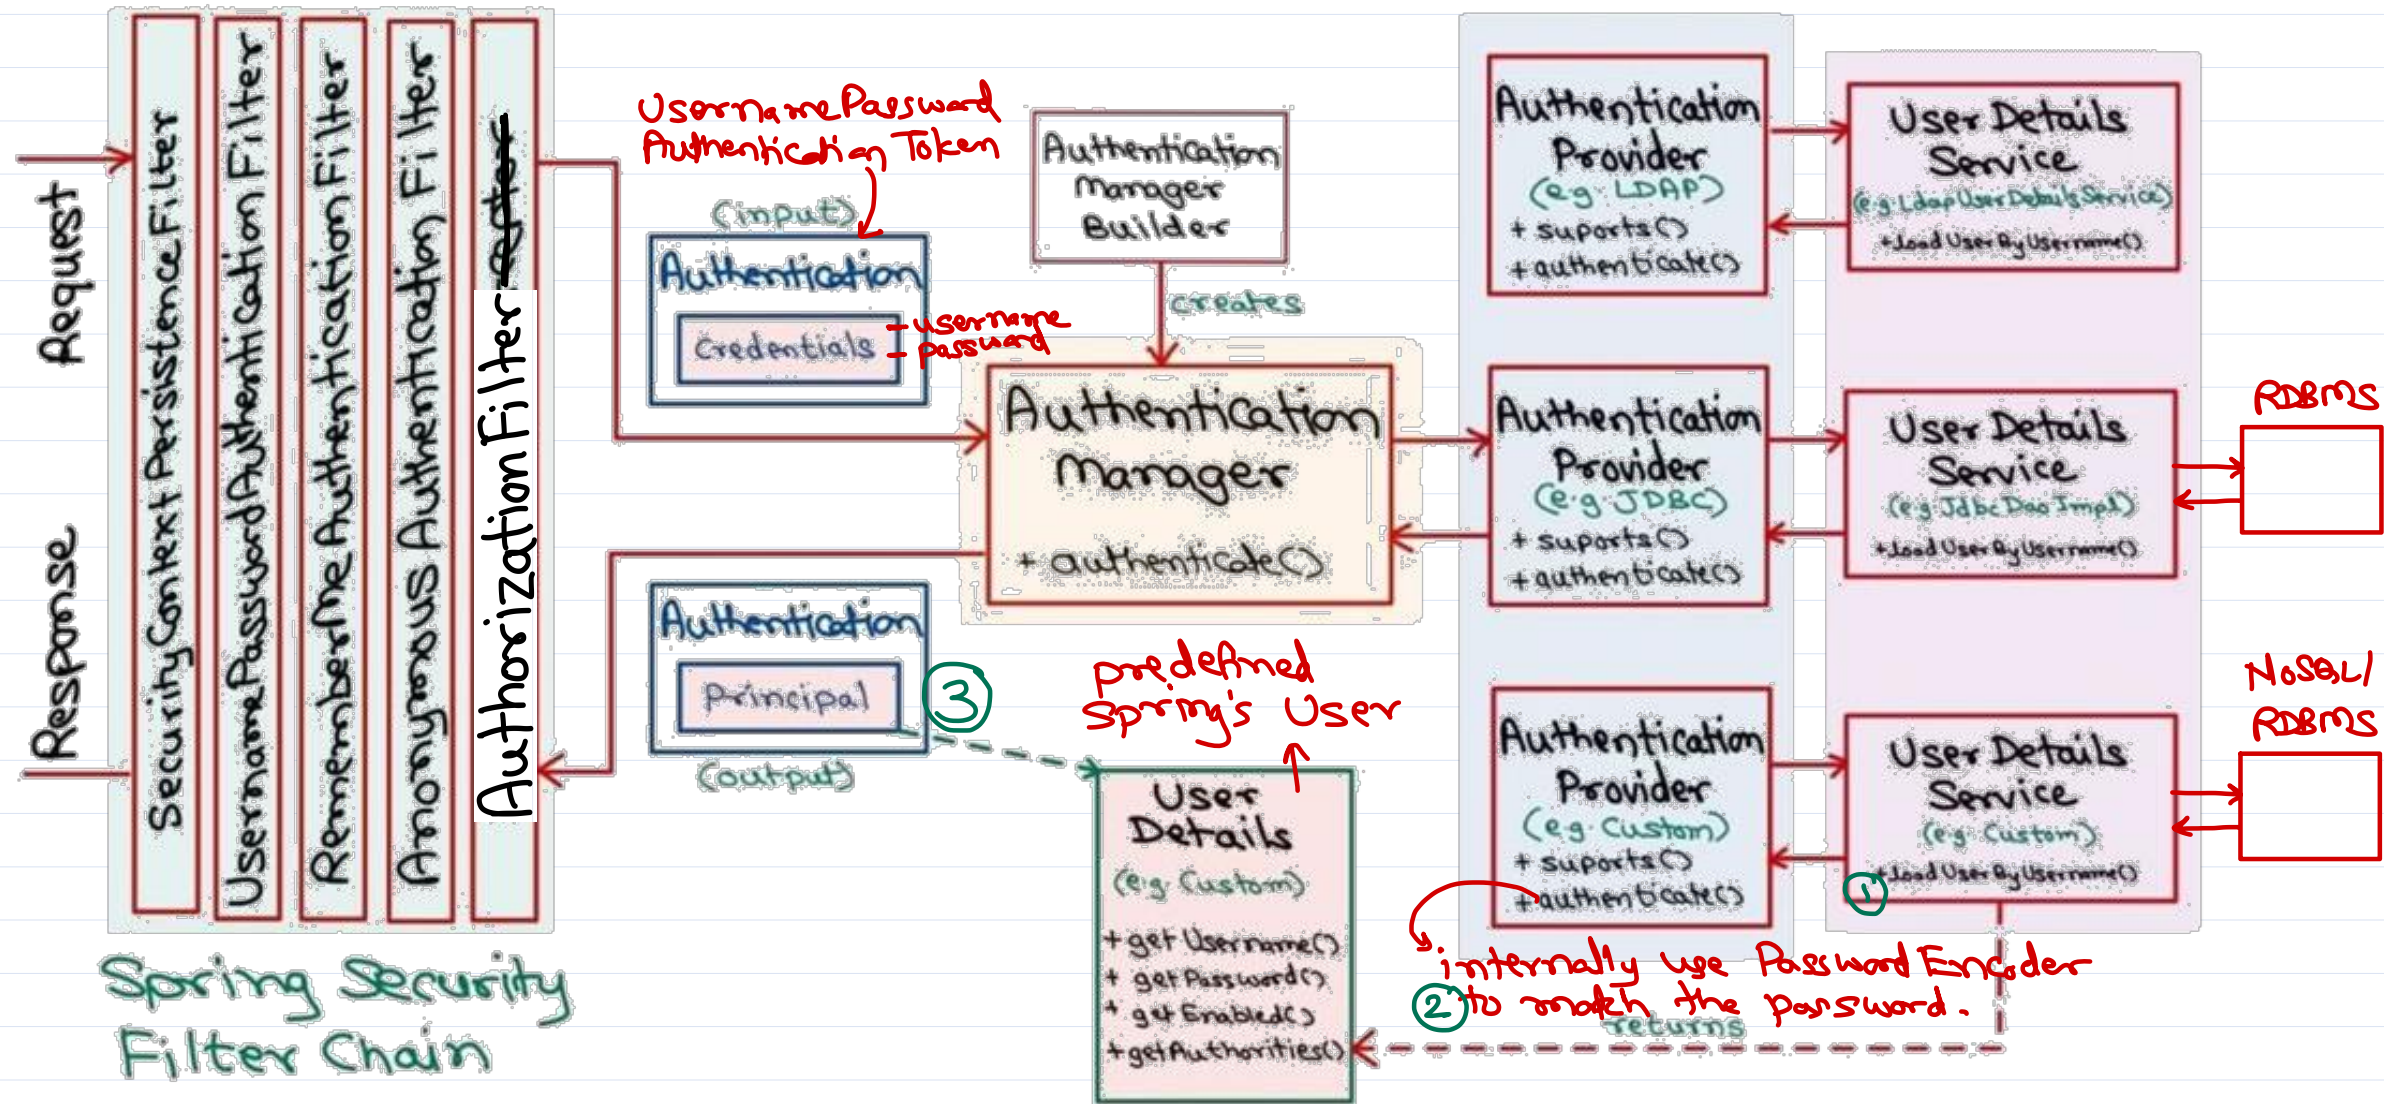 Request
Response
SecurityContextPersistenceFilter
UsernamePasswordAuthentication Filter
RememberMeAuthentication Filter
Anonymous Authentication Filter
AuthorizationFilter
Spring Security
Filter Chain
UsernamePassword
Authentication Token
(input)
Authentication
Credentials
- username
- password
Authentication
Manager
Builder
creates
Authentication
Manager
+ authenticate()
Authentication
Principal
(output)
3
predefined
Spring's User
User
Details
(e.g. Custom)
+ getUsername()
+ getPassword()
+ getEnabled()
+getAuthorities()
Authentication
Provider
(e.g. LDAP)
+ suports()
+ authenticate()
User Details
Service
(e.g. LdapUserDetailsService)
+loadUserByUsername()
Authentication
Provider
(e.g. JDBC)
+ suports()
+ authenticate()
User Details
Service
(e.g. JdbcDaoImpl)
+loadUserByUsername()
RDBMS
Authentication
Provider
(e.g. Custom)
+ suports()
+ authenticate()
User Details
Service
(e.g. Custom)
+loadUserByUsername()
1
NoSQL/
RDBMS
internally use PasswordEncoder
2 to match the password.
returns